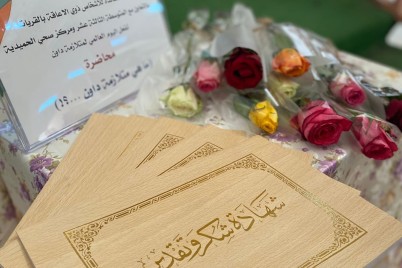 للأشخاص ذوي الاعاقة بالقريات
المتوسطة الثالثة عشر ومركز صحي الحميدية
اليوم العالمي لمتلازمة داون
محاضرة
ماهي متلازمة داون
شهادة شكر وتقدير